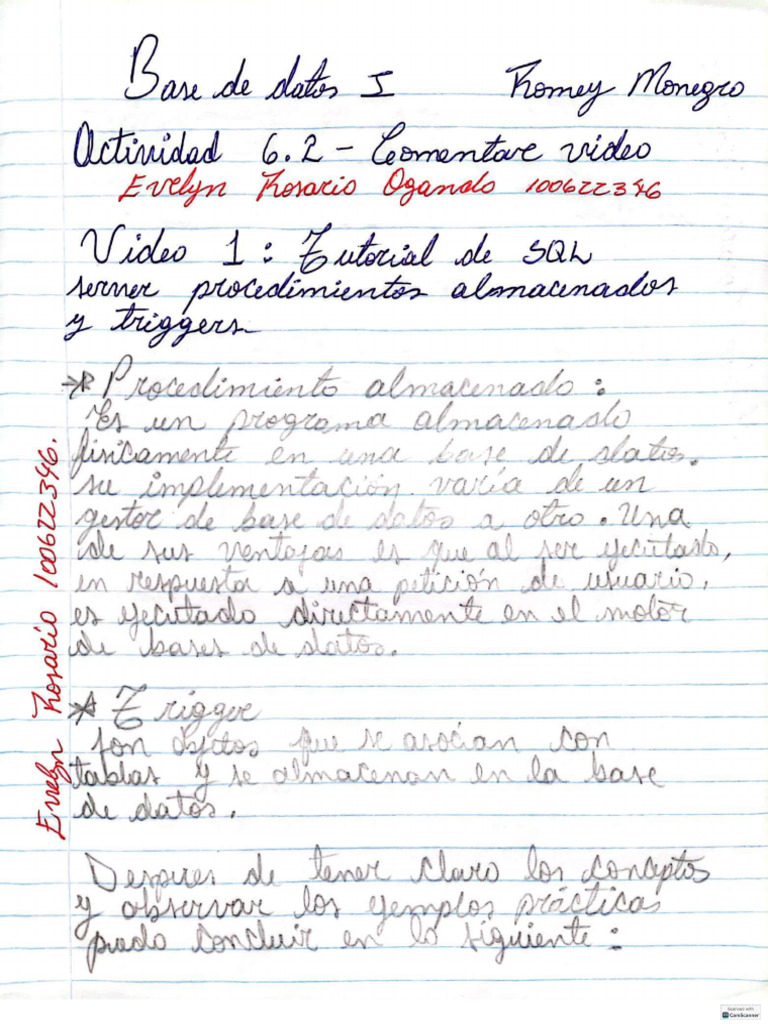 Base de datos I Romey Monegro
Actividad 6.2 - Comentar video
Evelyn Rosario Ogando 100622346
Video 1: Tutorial de SQL
server procedimientos almacenados
y triggers
Procedimiento almacenado:
Es un programa almacenado
físicamente en una base de datos.
su implementación varía de un
gestor de base de datos a otro. Una
de sus ventajas es que al ser ejecutado,
en respuesta a una petición de usuario,
es ejecutado directamente en el motor
de bases de datos.
Trigger
Son objetos que se asocian con
tablas y se almacenan en la base
de datos.
Despues de tener claro los conceptos
y observar los ejemplos prácticas
puedo concluir en lo siguiente:
Evelyn Rosario 100622346.
Scanned with
CamScanner